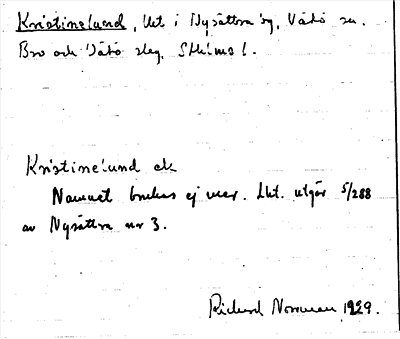 Kristinelund, lht i Nysättra by, Vätö sn.
Bro och Vätö slag, Sthlms l.
Kristinelund etc
Namnet brukas ej mer. Lht. utgör 5/288
av Nysättra nr 3.
Rickard Norrman 1929.